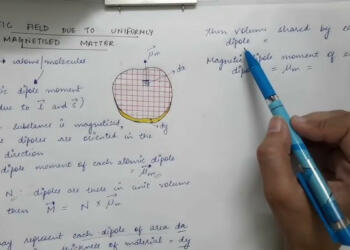 TIC FIELD DUE TO UNIFORMLY
MAGNETISED MATTER
→ atoms/molecules
tic dipole moment
due to L and S)
substance is magnetised
s are oriented in the
direction
dipole moment of each atomic dipole =
μm
N : dipoles are there in unit volume
then M = N × μm
may represent each dipole of area da
thickness of material = dy
μm
da
dy
Then volume shared by
dipole =
Magnetic dipole moment of
dipole = μm =